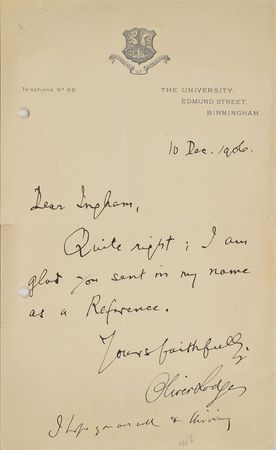 Telephone Nº 68
THE UNIVERSITY,
EDMUND STREET,
BIRMINGHAM.
10 Dec. 1906.
Dear Ingham,
Quite right; I am
glad you sent in my name
as a Reference.
Yours faithfully,
Oliver Lodge
I hope you are well & thriving